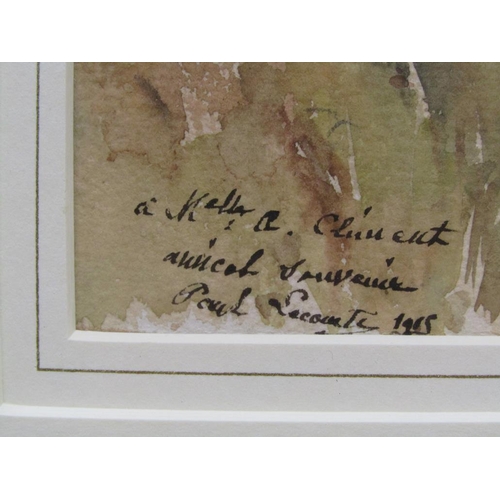 à Melle A. Clément
amical souvenir
Paul Lecomte 1915